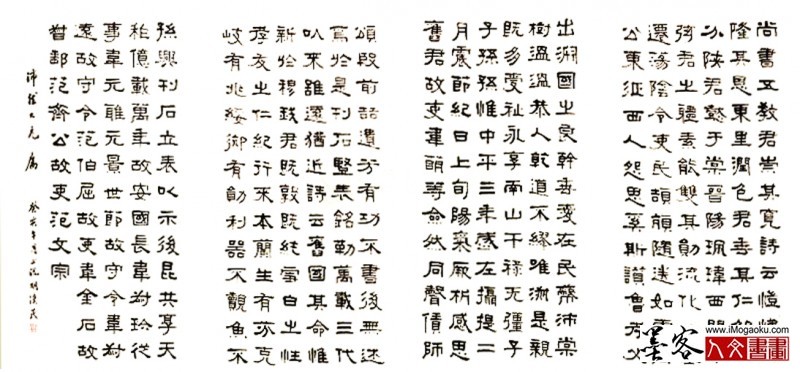 尚書五教君崇其寬詩云愷悌
隆其恩東里潤色君垂其仁
分陝君懿于棠晉陽珮瑋西門
弦君之體素能雙其勛流化
遷蕩陰令吏民頡頏隨送如雲
公東征西人怨思奚斯讃魯考父
出淵國之良幹垂愛在民蔽沛棠
樹溫溫恭人乾道不繆唯淑是親
既多受祉永享南山干祿无彊子
子孫孫惟中平三年歲在攝提二
月震節紀日上旬陽氣厥析感思
舊君故吏韋萌等僉然同聲賃師
頌殷前喆遺芳有功不書後無述
焉於是刊石豎表銘勒萬載三代
以來雖遠猶近詩云舊國其命惟
新於穆我君既敦既純雪白之性
孝友之仁紀行來本蘭生有芬克
岐有兆綏御有勛利器不覿魚不
孫興刊石立表以示後昆共享天
祚億載萬年故安國長韋叔珍從
事韋元雅元景世節故守令韋叔
遠故守令范伯犀故吏韋金石故
督郵范齊公故吏范文宗
沛然大兄 屬
癸亥年
墨客
www.iMogaoku.com
人文書畫